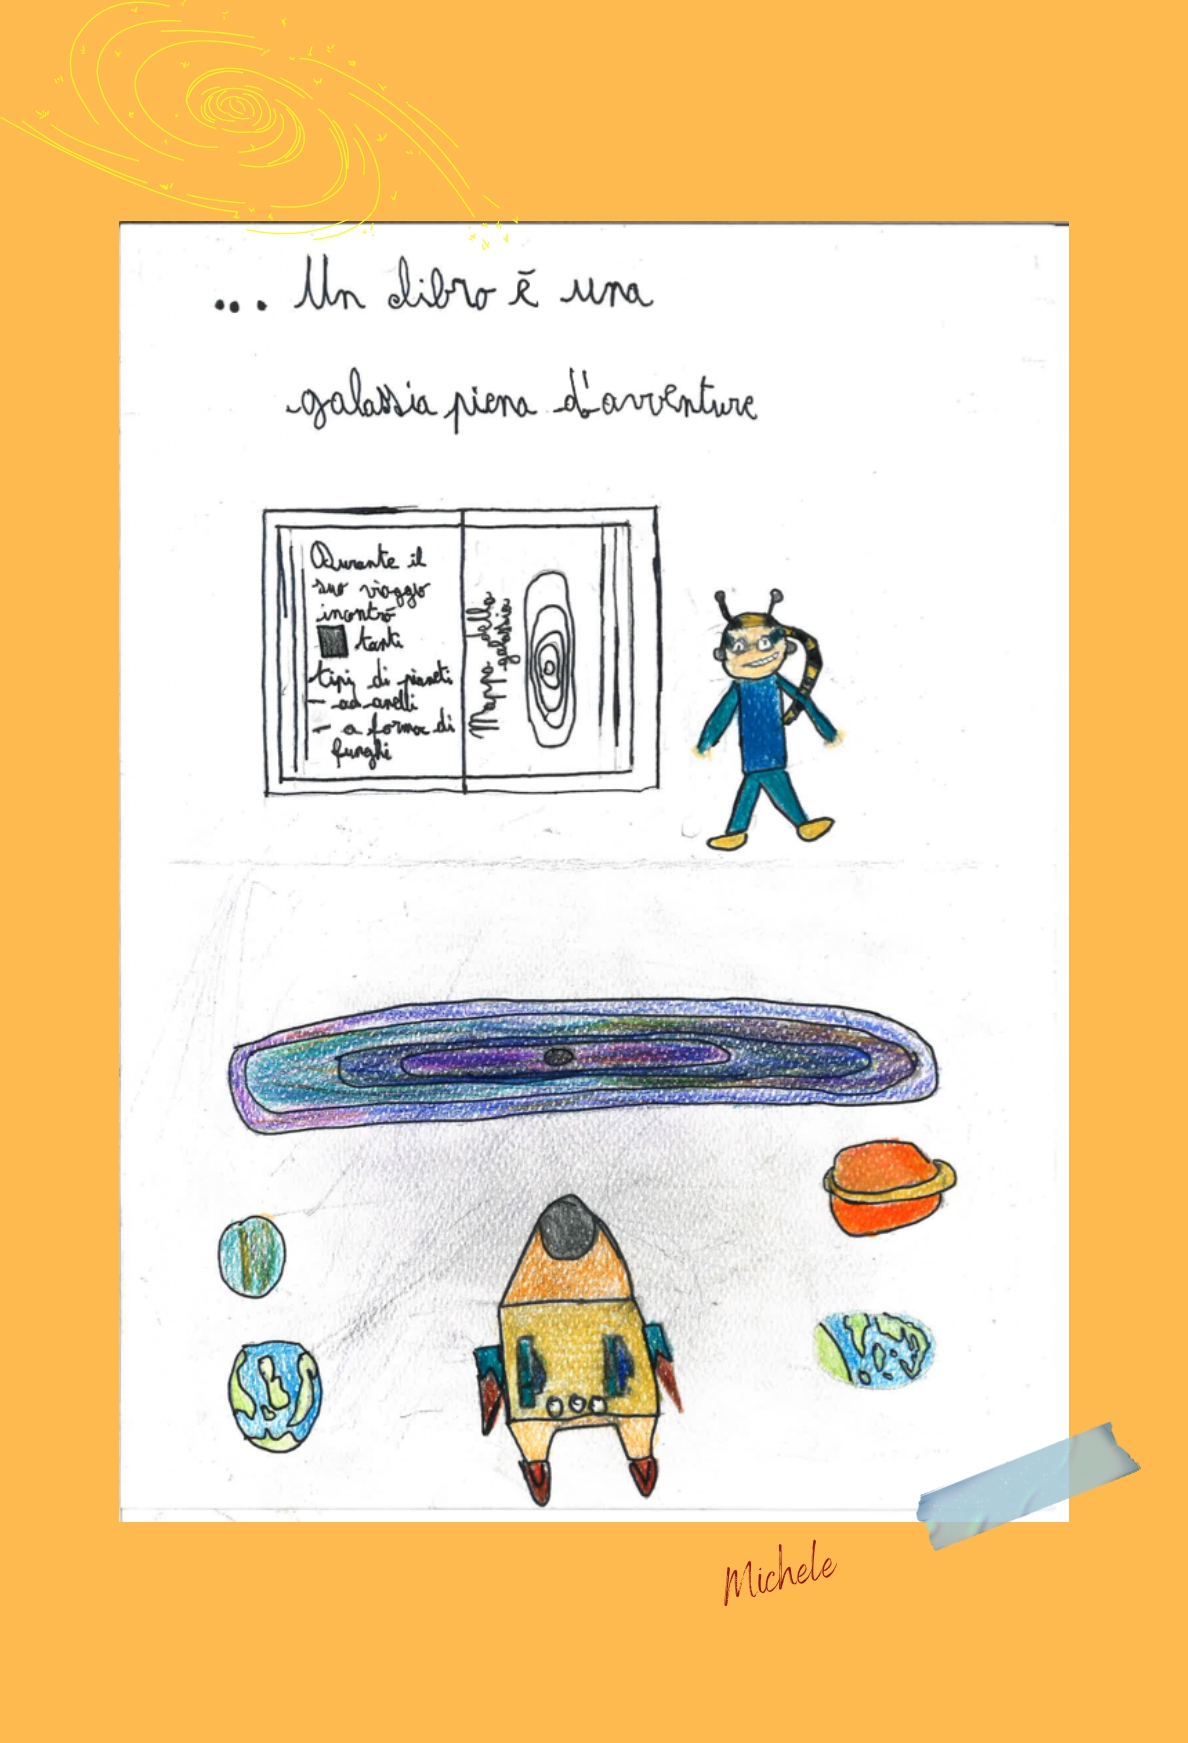 ... Un libro è una
galassia piena d'avventure
Durante il
suo viaggio
incontrò
tanti
tipi di pianeti
- ad anelli
- a forma di
funghi
Mappa della
galassia
Michele